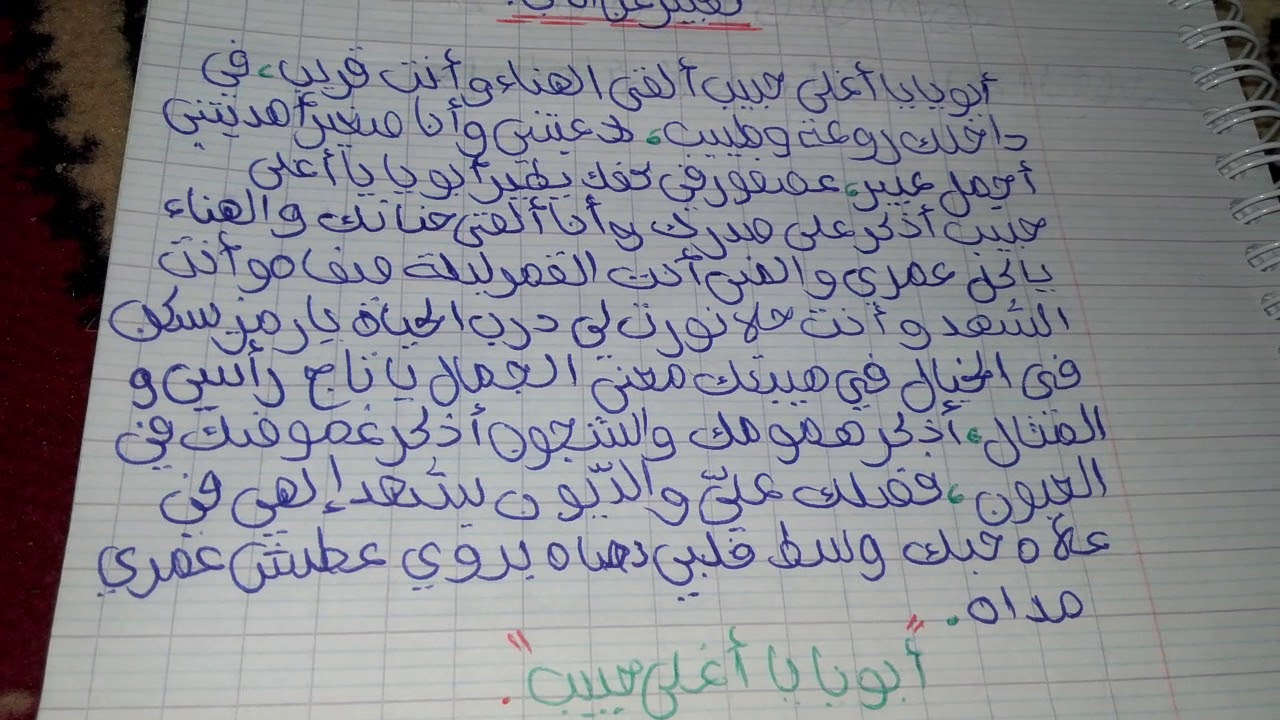 تعبير عن الأب.
أبويا يا أغلى حبيب ألقى الهناء وأنت قريب، في
داخلك روعة وطيب، دعتني وأنا صغير أهديتني
أجمل عبير، عصفور في كفك يطير أبويا يا أغلى
حبيب أذكر على صدرك وأنا ألقى حنانك والهناء
ياكل عمري والمنى أنت القمر ليلة صفاه وأنت
الشهد وأنت حلا نورت لي درب الحياة يا رمز سكن
في الخيال في هيبتك معنى الجمال يا تاج رأسي و
المثال، أذكر همومك والشجون أذكر غموضك في
العيون، فضلك عليّ والدّيون يشهد إلهي في
علاه حبك وسط قلبي دماه يروي عطش عمري
مداه.
"أبويا يا أغلى حبيب".